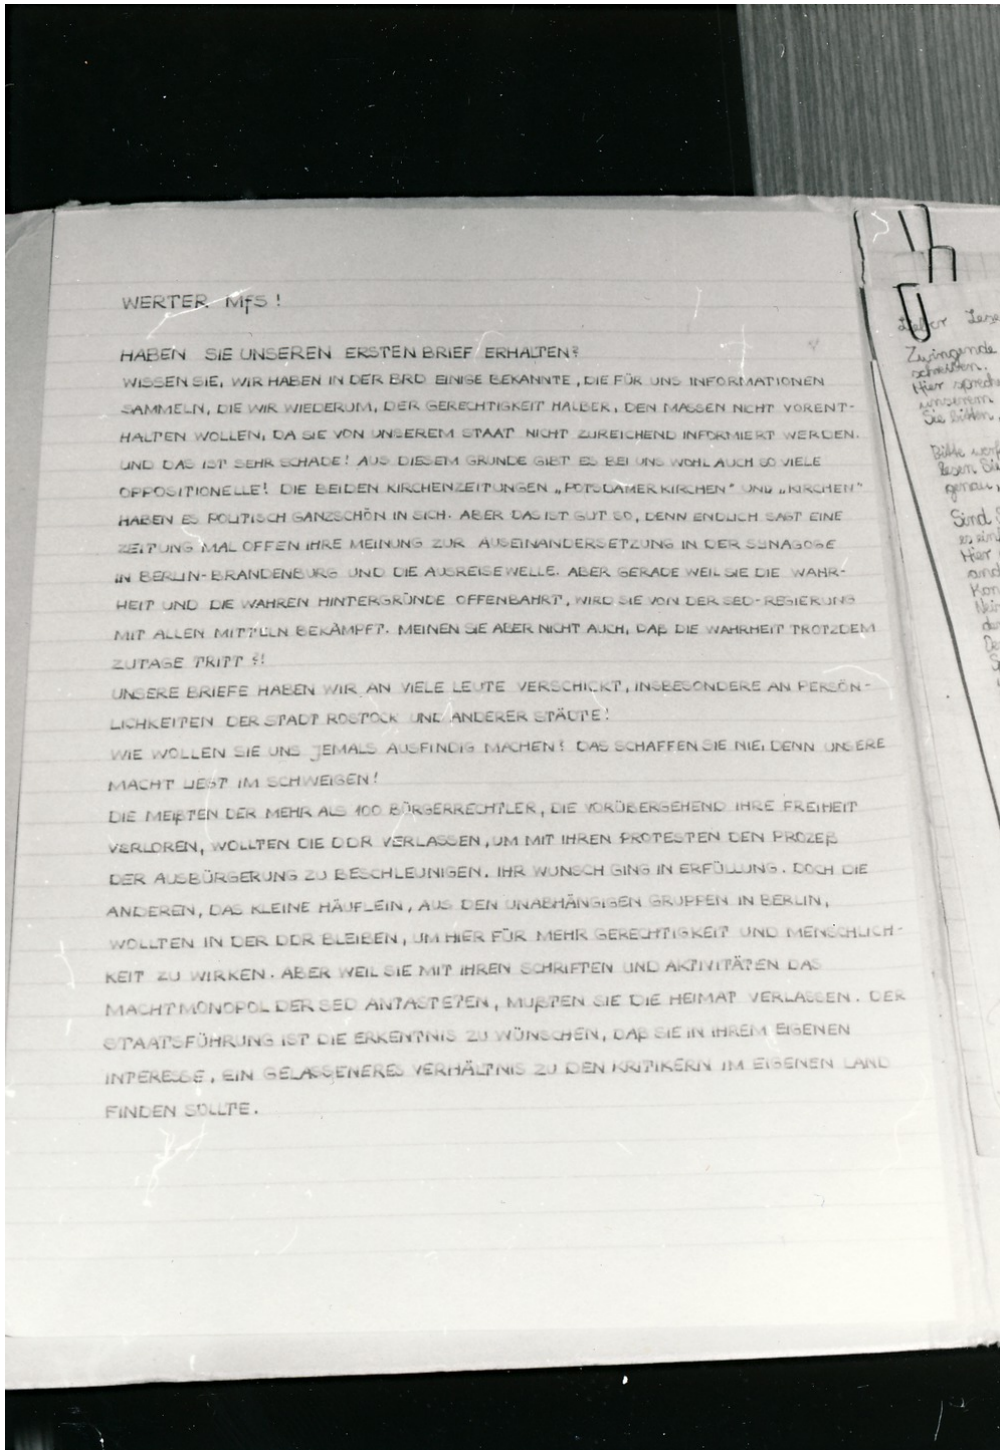 WERTER MfS!
HABEN SIE UNSEREN ERSTEN BRIEF ERHALTEN?
WISSEN SIE, WIR HABEN IN DER BRD EINIGE BEKANNTE, DIE FÜR UNS INFORMATIONEN
SAMMELN, DIE WIR WIEDERUM, DER GERECHTIGKEIT HALBER, DEN MASSEN NICHT VORENT-
HALTEN WOLLEN, DA SIE VON UNSEREM STAAT NICHT ZUREICHEND INFORMIERT WERDEN.
UND DAS IST SEHR SCHADE! AUS DIESEM GRUNDE GIBT ES BEI UNS WOHL AUCH SO VIELE
OPPOSITIONELLE! DIE BEIDEN KIRCHENZEITUNGEN „POTSDAMER KIRCHEN" UND „KIRCHEN"
HABEN ES POLITISCH GANZSCHÖN IN SICH. ABER DAS IST GUT SO, DENN ENDLICH SAGT EINE
ZEITUNG MAL OFFEN IHRE MEINUNG ZUR AUSEINANDERSETZUNG IN DER SYNAGOGE
IN BERLIN-BRANDENBURG UND DIE AUSREISEWELLE. ABER GERADE WEIL SIE DIE WAHR-
HEIT UND DIE WAHREN HINTERGRÜNDE OFFENBAHRT, WIRD SIE VON DER SED-REGIERUNG
MIT ALLEN MITTELN BEKÄMPFT. MEINEN SIE ABER NICHT AUCH, DAß DIE WAHRHEIT TROTZDEM
ZUTAGE TRITT ?!
UNSERE BRIEFE HABEN WIR AN VIELE LEUTE VERSCHICKT, INSBESONDERE AN PERSÖN-
LICHKEITEN DER STADT ROSTOCK UND ANDERER STÄDTE!
WIE WOLLEN SIE UNS JEMALS AUSFINDIG MACHEN? DAS SCHAFFEN SIE NIE, DENN UNSERE
MACHT LIEGT IM SCHWEIGEN!
DIE MEIßTEN DER MEHR ALS 100 BÜRGERRECHTLER, DIE VORÜBERGEHEND IHRE FREIHEIT
VERLOREN, WOLLTEN DIE DDR VERLASSEN, UM MIT IHREN PROTESTEN DEN PROZEß
DER AUSBÜRGERUNG ZU BESCHLEUNIGEN. IHR WUNSCH GING IN ERFÜLLUNG. DOCH DIE
ANDEREN, DAS KLEINE HÄUFLEIN, AUS DEN UNABHÄNGIGEN GRUPPEN IN BERLIN,
WOLLTEN IN DER DDR BLEIBEN, UM HIER FÜR MEHR GERECHTIGKEIT UND MENSCHLICH-
KEIT ZU WIRKEN. ABER WEIL SIE MIT IHREN SCHRIFTEN UND AKTIVITÄTEN DAS
MACHTMONOPOL DER SED ANTASTETEN, MUßTEN SIE DIE HEIMAT VERLASSEN. DER
STAATSFÜHRUNG IST DIE ERKENTNIS ZU WÜNSCHEN, DAß SIE IN IHREM EIGENEN
INTERESSE, EIN GELASSENERES VERHÄLTNIS ZU DEN KRITIKERN IM EIGENEN LAND
FINDEN SOLLTE.
Lieber Lese
Zwingende
schreiben.
Hier spreche
unserem
Sie bitten,
Bitte
legen Sie
genau,
Sind S
es
Hier
and